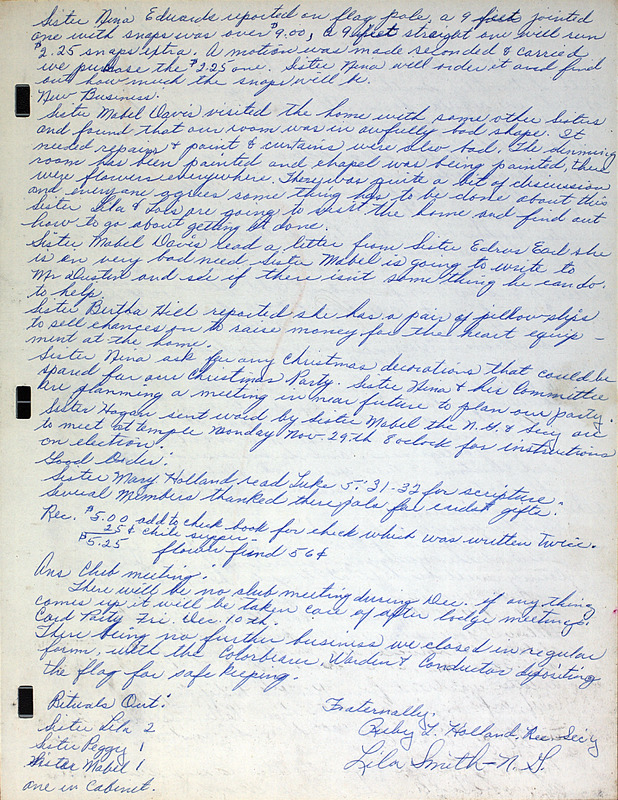 Sister Nina Edwards reported on flag pole, a 9 foot jointed
one with snaps was over $9.00, a 9 feet straight one will run
$2.25 snaps extra. A motion was made seconded & carried
we purchase the $2.25 one. Sister Nina will order it and find
out how much the snaps will be.
New Business:
Sister Mabel Davis visited the home with some other Sisters
and found that our room was in awfully bad shape. It
needed repairs & paint & curtains were also bad. The dinning
room has been painted and chapel was being painted, there
were flowers everywhere. There was quite a bit of discussion
and everyone agrees some thing has to be done about this
Sister Lila & Lois are going to visit the home and find out
how to go about getting it done.
Sister Mabel Davis read a letter from Sister Earl she
is in very bad need Sister Mabel is going to write to
Mr Dustin and see if there isn't some thing he can do.
to help.
Sister Bertha Hill reported she has a pair of pillow slips
to sell chances on to raise money for the heart equip-
ment at the home.
Sister Nina ask for any Christmas decorations that could be
spared for our Christmas Party. Sister Nina & her Committee
are planning a meeting in near future to plan our party.
Sister Hagan sent word by Sister Mabel the N.G. & Secy are
to meet at temple Monday Nov. 29th 8 oclock for instructions
on election.
Good Order:
Sister Mary Holland read Luke 5:31-32 for scripture.
Several Members thanked there pals for gifts.
Rec. $5.00 add to check book for check which was written twice.
25¢ chili supper
$5.25 flower fund 56¢
Ans Club meeting:
There will be no club meeting during Dec. if any thing
comes up it will be taken care of after lodge meeting.
Card Party Fri. Dec. 10th.
There being no further business we closed in regular
form, with the Colorbearer, Warden & Conductor depositing
the flag for safe keeping.
Rituals Out:
Sister Lila 2
Sister Peggy 1
Sister Mabel 1
one in Cabinet.
Fraternally,
Ruby L. Holland, Rec. Sec'y
Lila Smith - N. G.